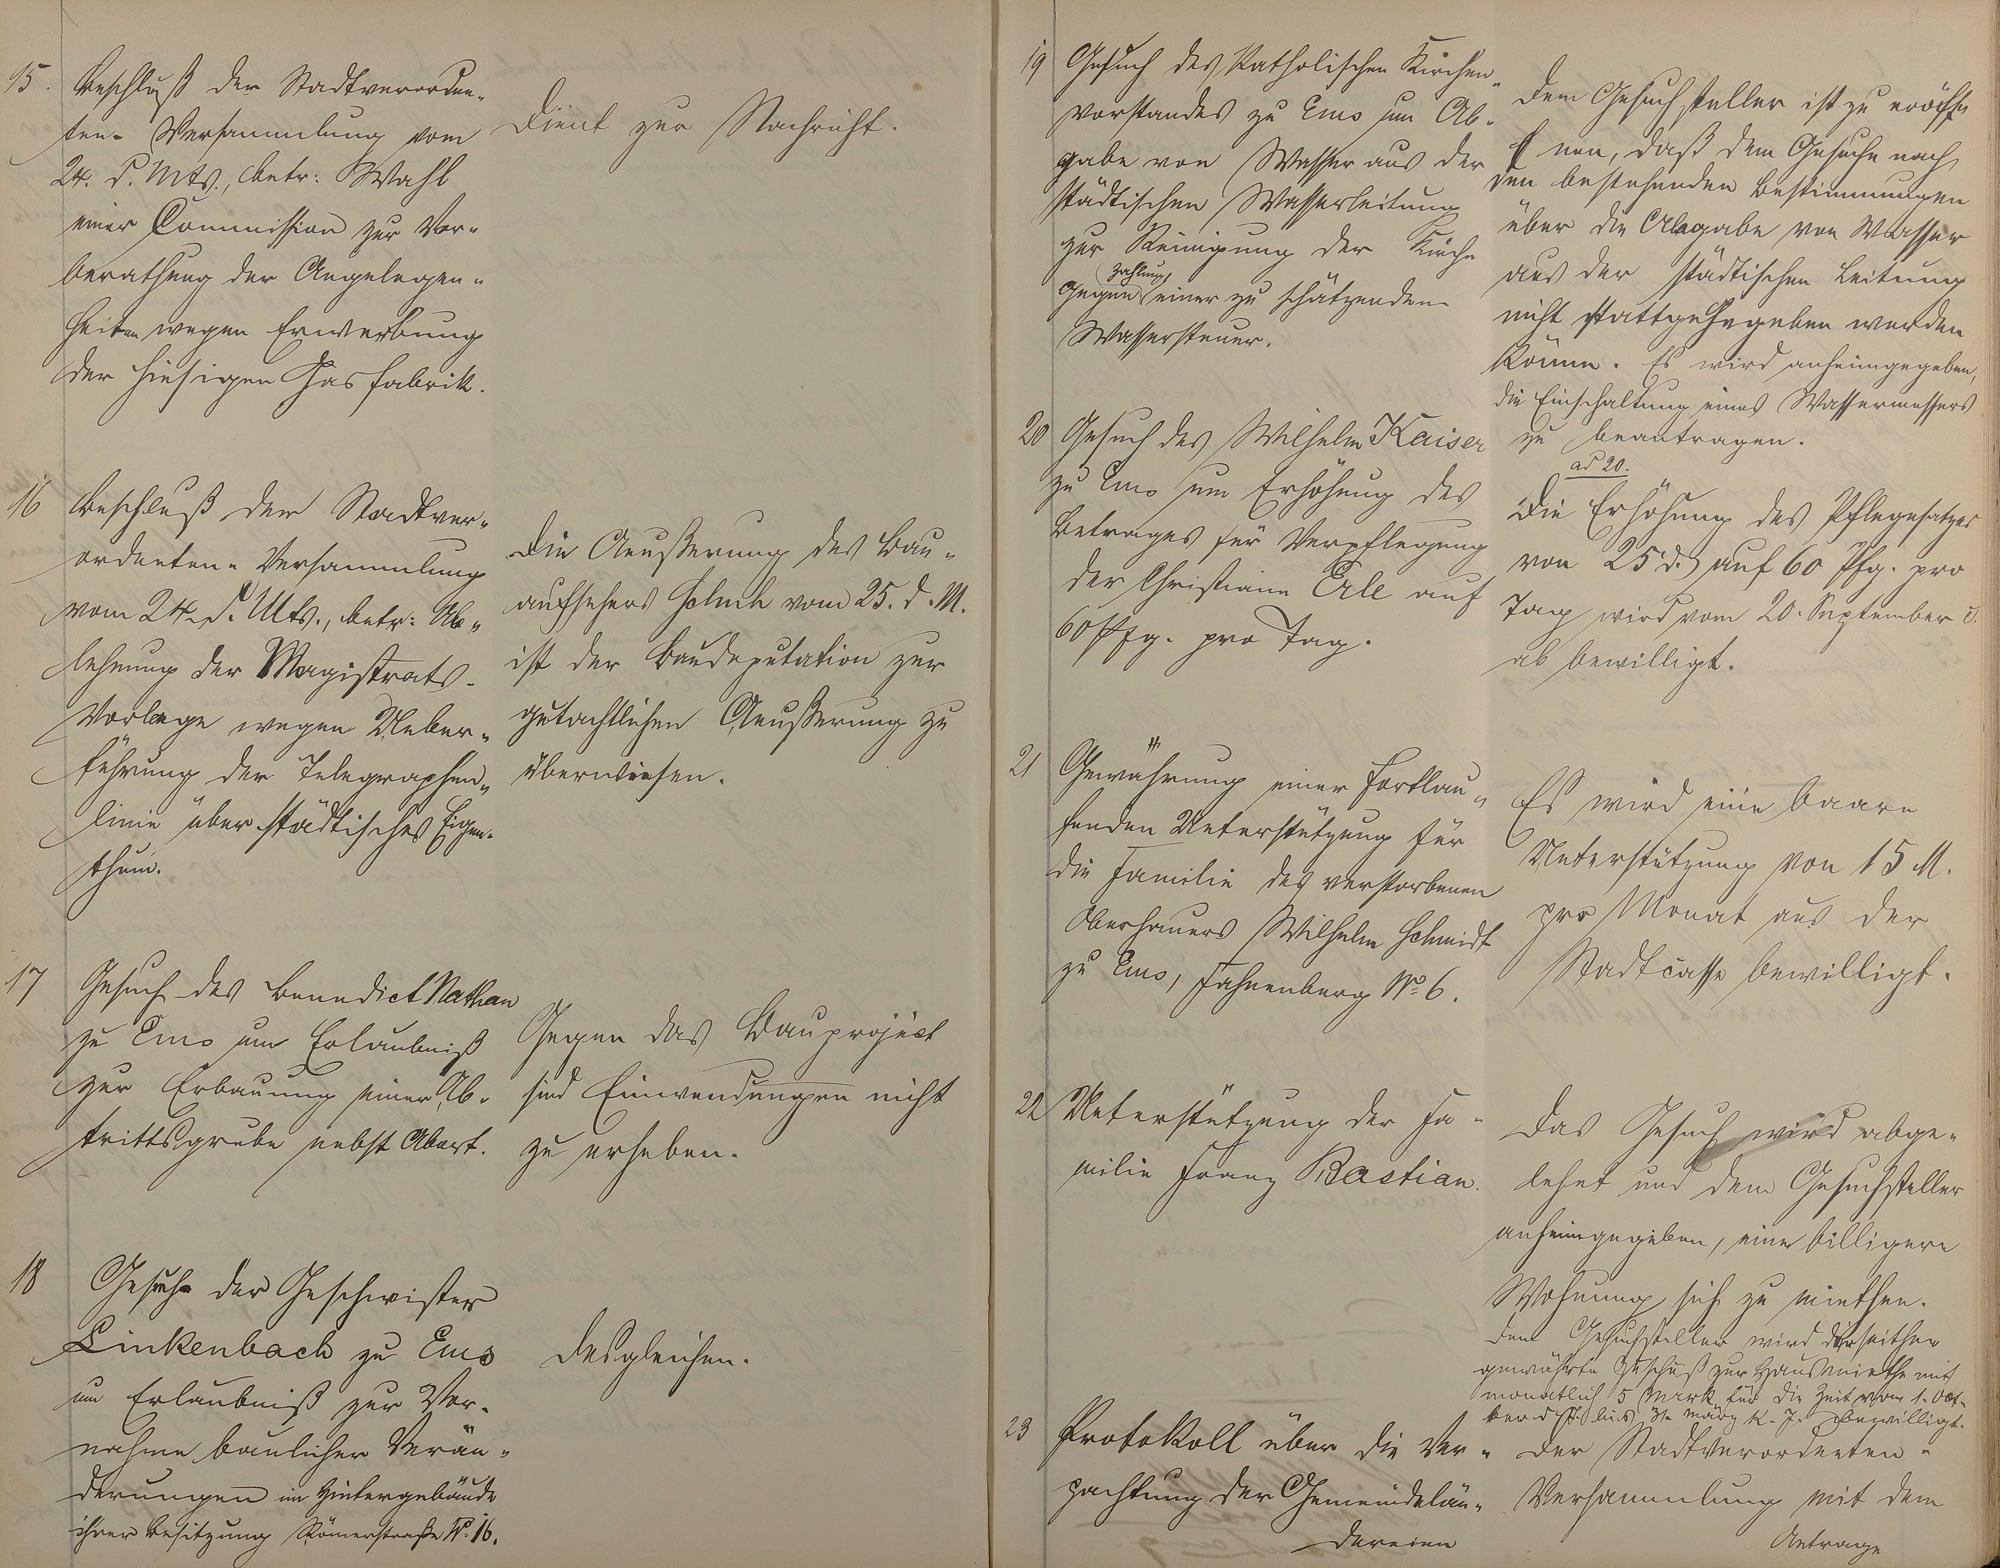 15. Beschluß der Stadtverordne-
ten-Versammlung vom
24. d. Mts., betr: Wahl
einer Commission zur Vor-
berathung der Angelegen-
heiten wegen Erwerbung
der hiesigen Gasfabrik.
Dient zur Nachricht.
16 Beschluß der Stadtver-
ordneten-Versammlung
vom 24. d. Mts., betr: Ab-
lehnung der Magistrats-
Vorlage wegen Ueber-
führung der Telegraphen-
linie über städtisches Eigen-
thum.
Die Aeußerung des Bau-
aufsehers vom 25. d. M.
ist der Baudeputation zur
gutachtlichen Aeußerung zu
überweisen.
17 Gesuch des Benedict Nathan
zu Ems um Erlaubniß
zur Erbauung einer Ab-
trittsgrube nebst Abort.
Gegen das Bauproject
sind Einwendungen nicht
zu erheben.
18 Gesuch der Geschwister
Linkenbach zu Ems
um Erlaubniß zur Vor-
nahme baulicher Verän-
derungen im Hintergebäude
ihrer Besitzung Römerstraße No. 16.
Desgleichen.
19 Gesuch des Katholischen Kirchen-
vorstandes zu Ems um Ab-
gabe von Wasser aus der
städtischen Wasserleitung
zur Reinigung der Kirche
gegen Zahlung einer zu schätzenden
Wassersteuer.
Dem Gesuchsteller ist zu eröff-
nen, daß dem Gesuche nach
den bestehenden Bestimmungen
über die Abgabe von Wasser
aus der städtischen Leitung
nicht stattgegeben werden
könne. Es wird anheimgegeben,
die Einschaltung eines Wassermessers
zu beantragen.
20 Gesuch des Wilhelm Kaiser
zu Ems um Erhöhung des
Betrages für Verpflegung
der Christiane Erle auf
60 Pfg. pro Tag.
ad 20.
Die Erhöhung des Pflegesatzes
von 25 d. auf 60 Pfg. pro
Tag wird vom 20. September d.
ab bewilligt.
21 Gewährung einer fortlau-
fenden Unterstützung für
die Familie des verstorbenen
Oberhauers Wilhelm Schmidt
zu Ems, Fahnenberg No. 6.
Es wird eine baare
Unterstützung von 15 M.
pro Monat aus der
Stadtcasse bewilligt.
22 Unterstützung der Fa-
milie Franz Bastian.
Das Gesuch wird abge-
lehnt und dem Gesuchsteller
anheimgegeben, eine billigere
Wohnung sich zu miethen.
Dem Gesuchsteller wird der seither
gewährte Zuschuß zur Hausmiethe mit
monatlich 5 Mark für die Zeit vom 1. Octo-
ber d. J. bis 31. März k. J. bewilligt.
23 Protokoll über die Ver-
pachtung der Gemeindelän-
dereien
Der Stadtverordneten-
Versammlung mit dem
Antrage